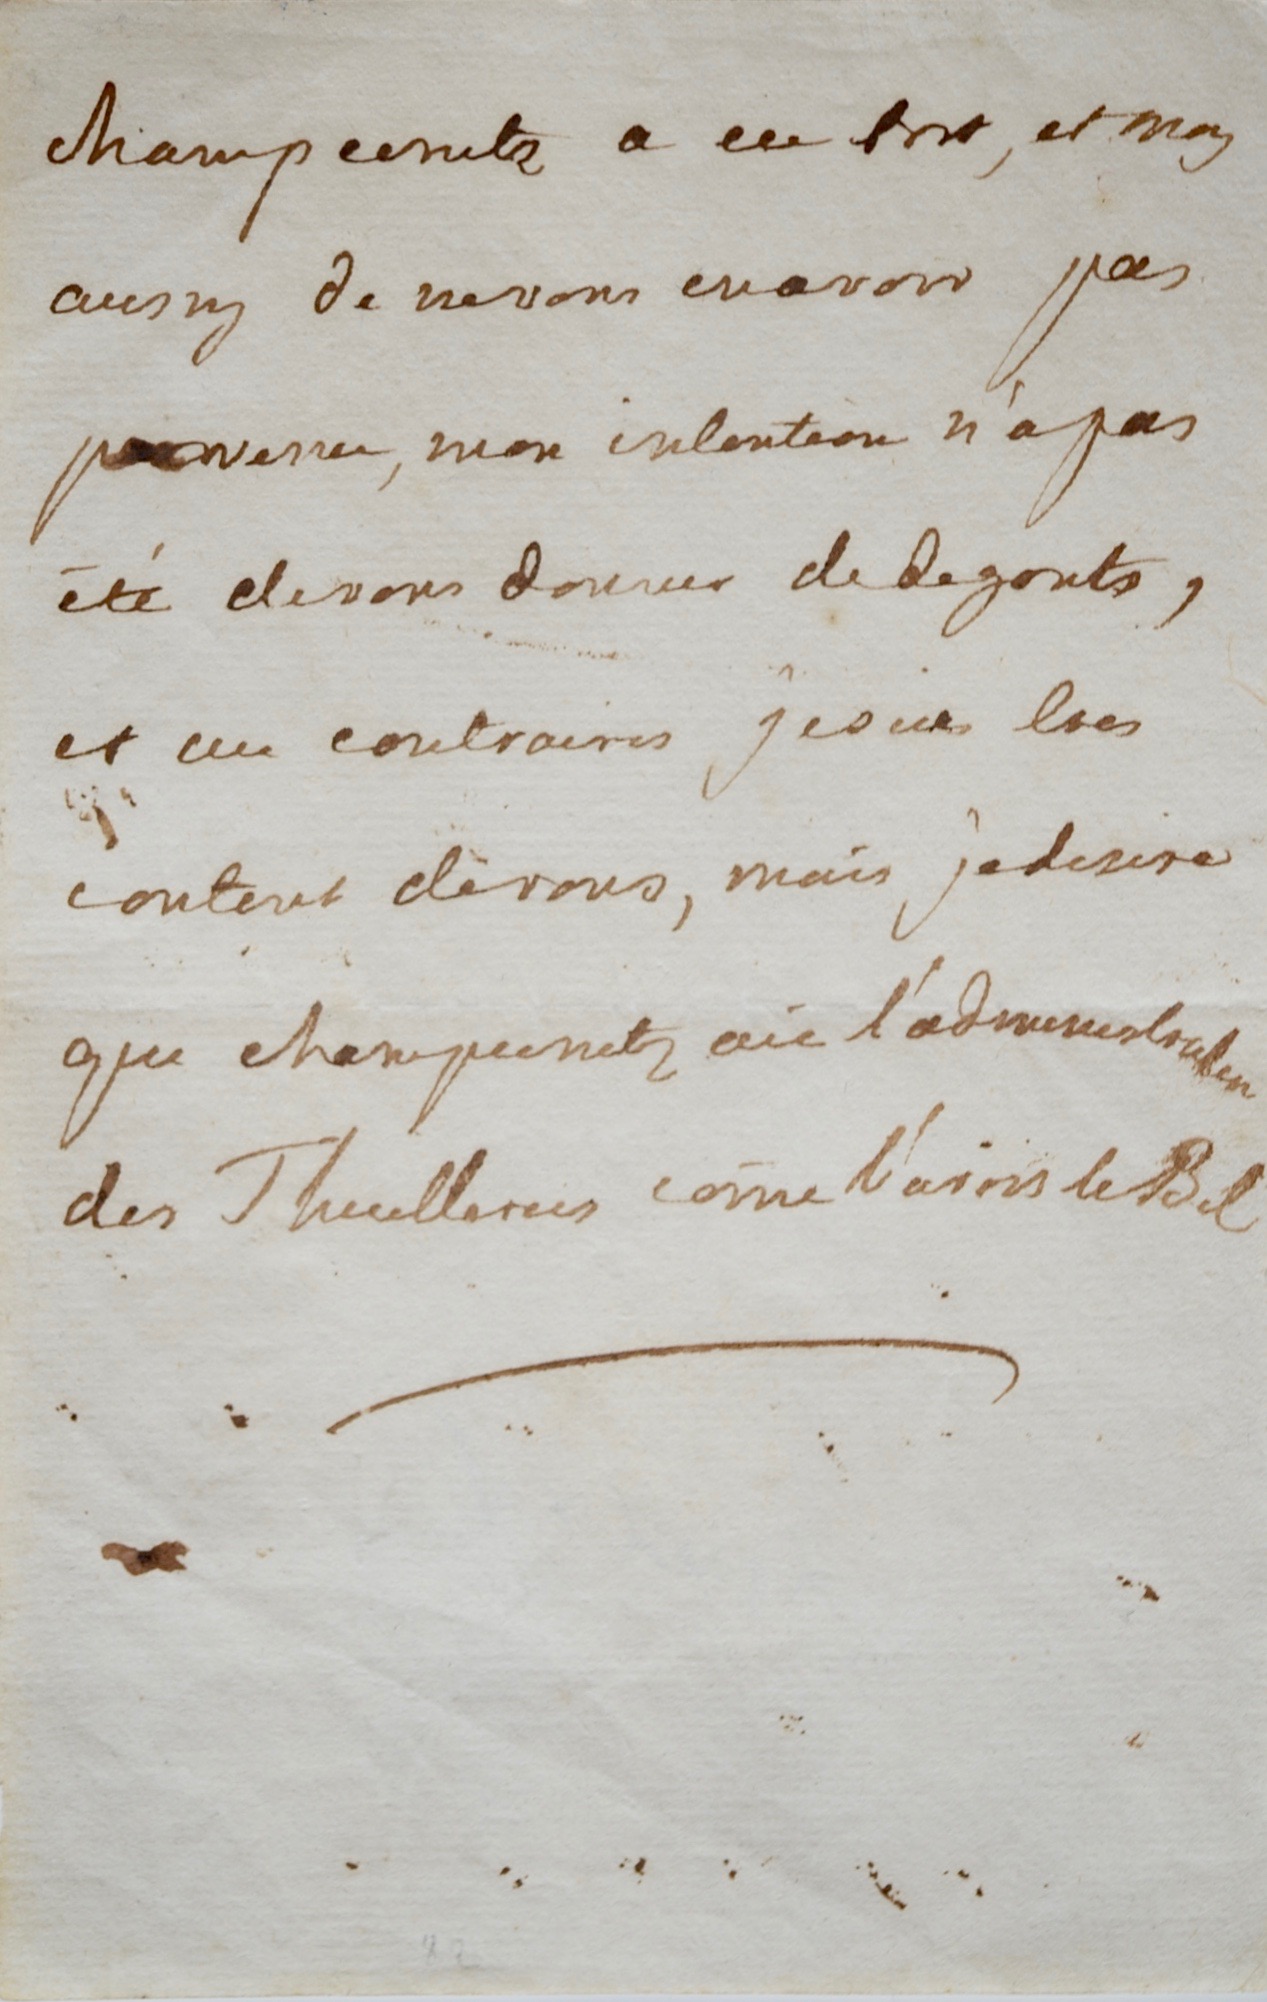 champcenetz a eu tort, et moy
aussy de ne vous en avoir pas
prevenu, mon intention n'a pas
été de vous donner de degouts,
et au contraires je suis tres
content de vous, mais je desire
que champcenetz aie l'administration
des Thuilleries come l'avois le Bel